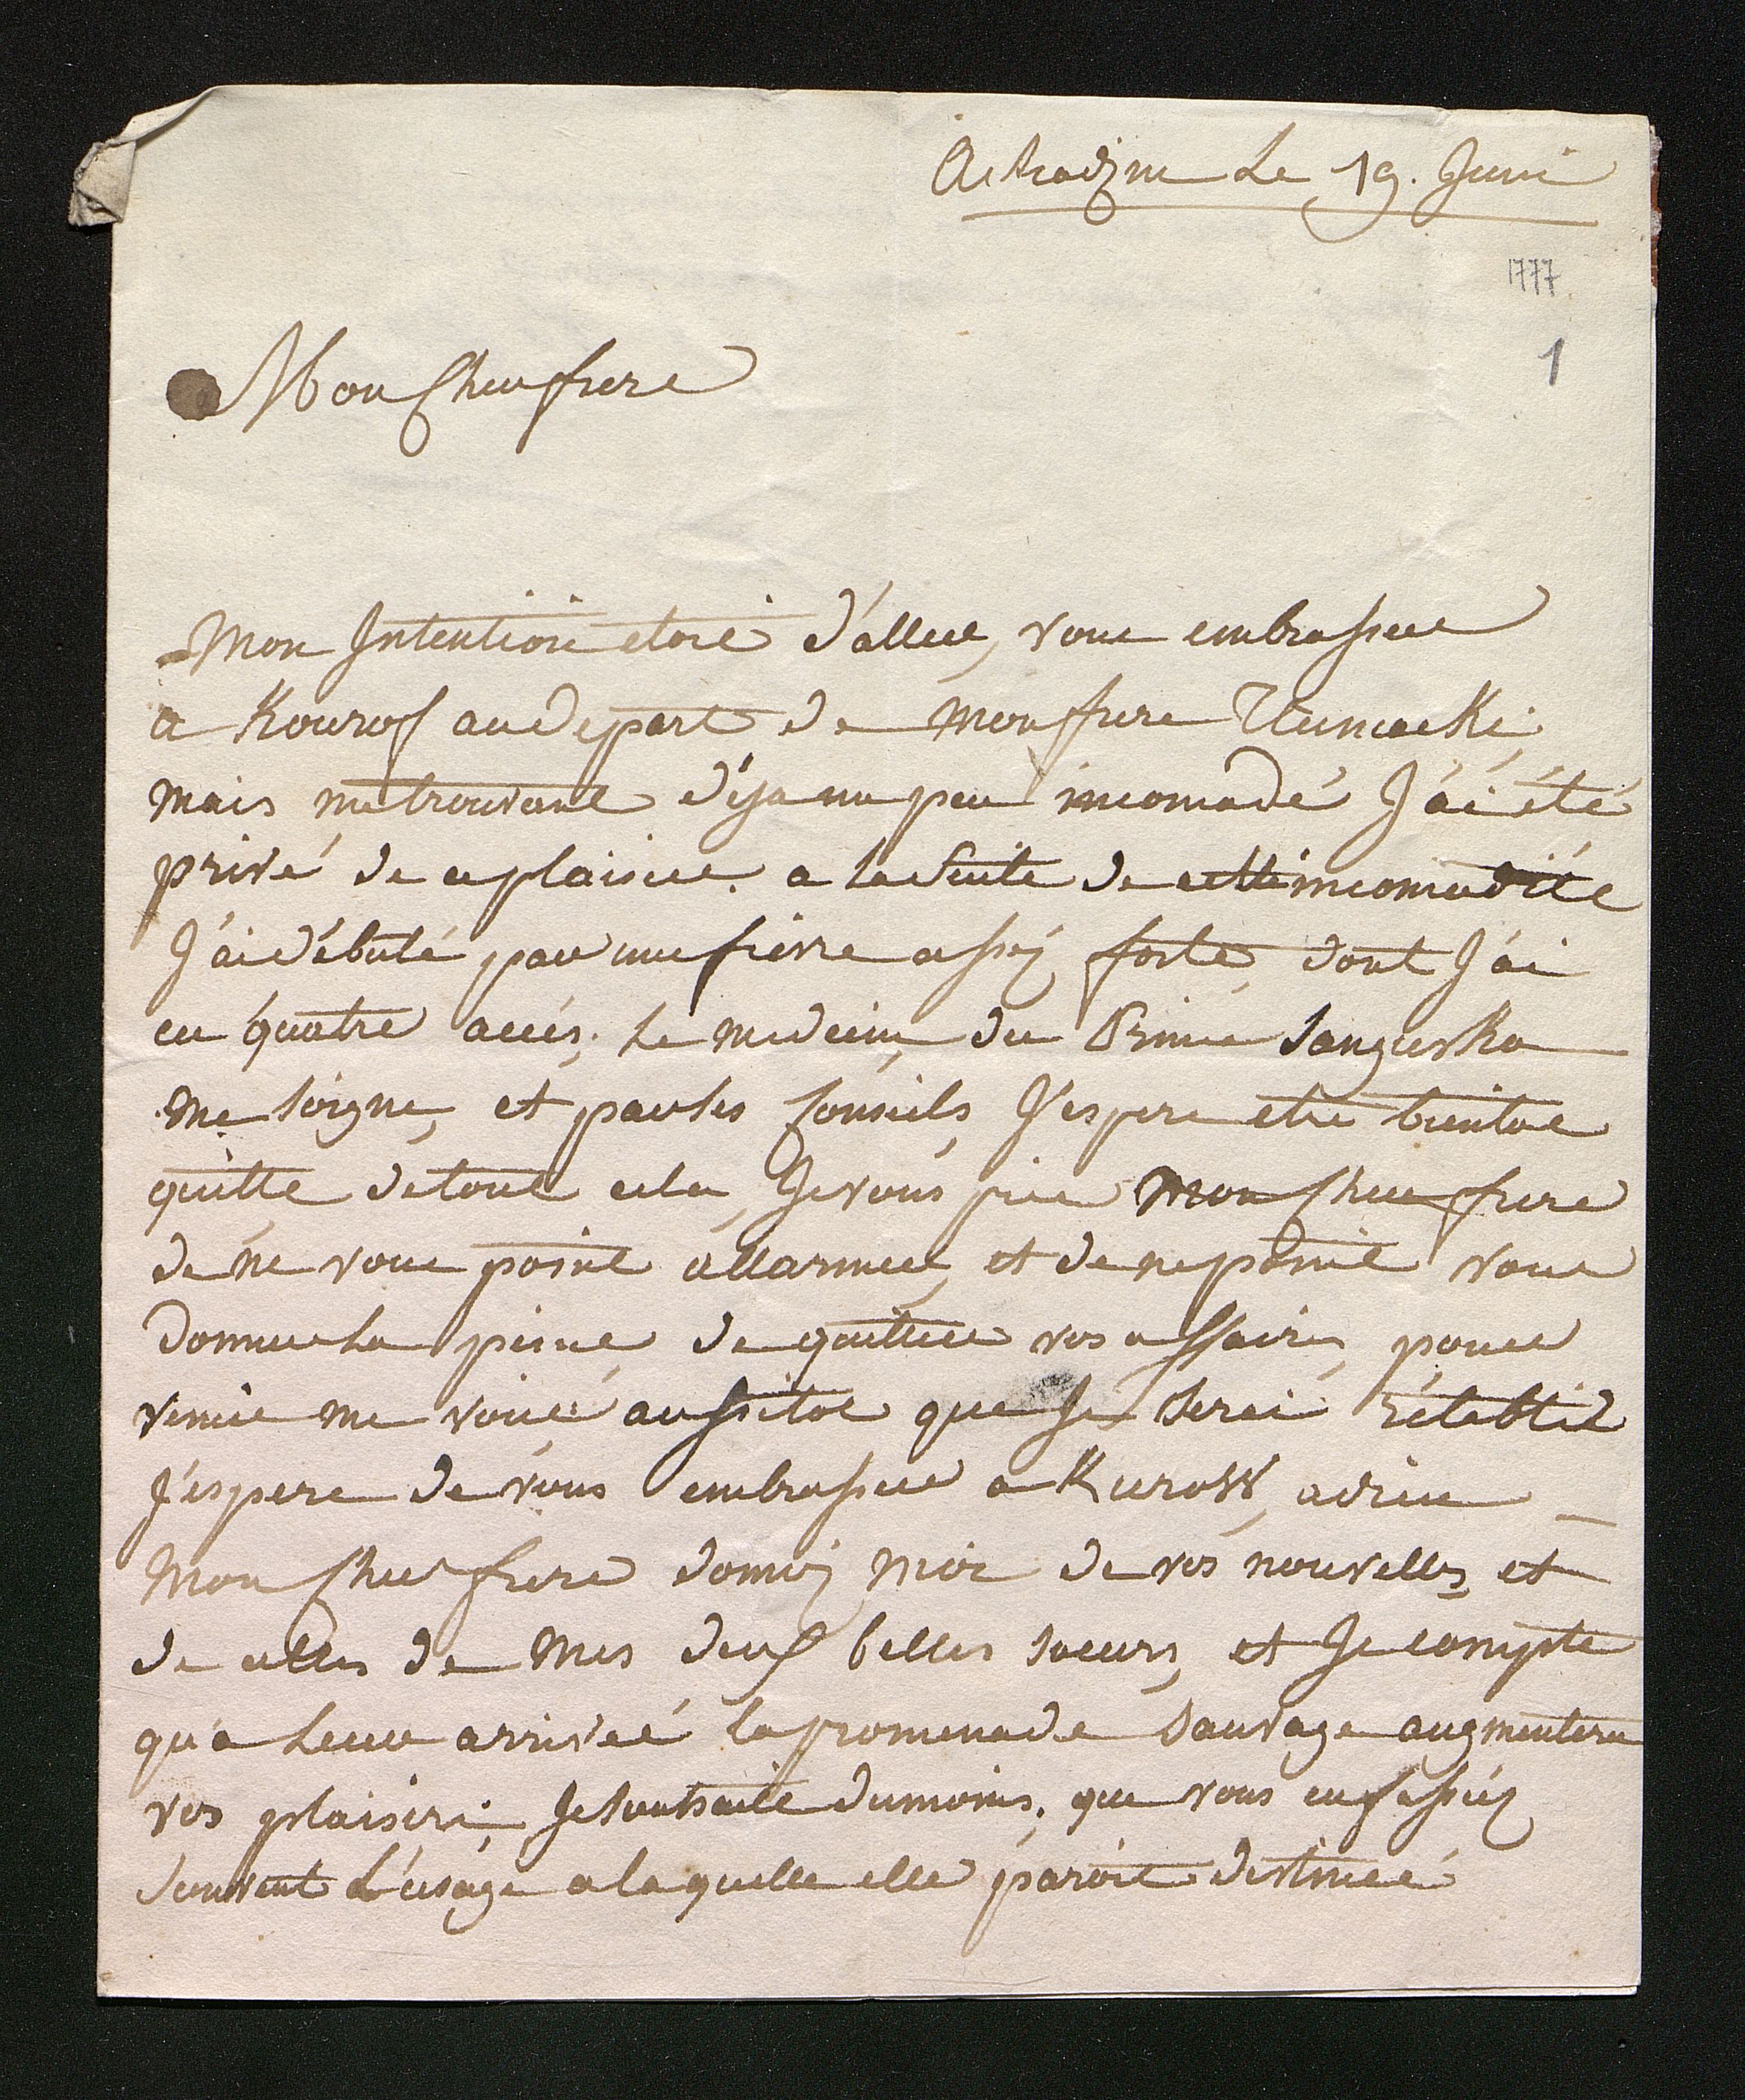 Le 19. Juni
1777
1
Mon Cher frere
Mon Intention etoit d'aller, vous embrasser
a Kourof au depart de mon frere
mais me trouvant déja un peu incomodé J'ái été
privé de ce plaisir. a la Suite de cette incomodité
J'ai débuté par une fievre assez forte, dont J'ai
eu quatre accés; Le medecin, du Prince Sangusko
me soigne, et par ses Conseils, J'espere etre bientot
quitte de tout cela, Je vous prie Mon Cher frere
de ne vous point allarmer, et de ne point vous
donner La peine, de quitter vos affaires, pour
venir me voir: aussitot que Je serai rétablit
J'espere de vous embrasser a Kuroff, adieu
Mon Cher frere donnez moi de vos nouvelles, et
de celles de Mes deux belles soeurs, et Je compte
qu'a Leur arriveé la promenade Sauvage augmentera
vos plaisirs; Je souhaite du moins, que vous en fassiez
Souvent L'usage a laquelle elle paroit destineé